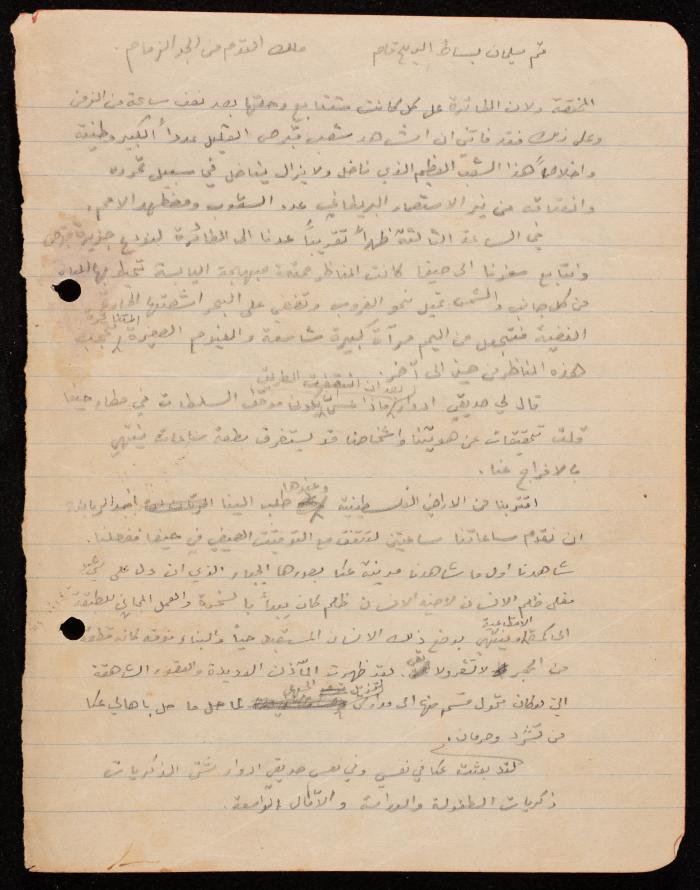 ثم سليمان بساط الريح قام ملك التقدم من الجو الزمام.
المنفعة ولان الطائرة على كل كانت ستتابع رحلتها بعد نصف ساعة من الزمن
وعلى ذلك فقد فاتني ان اشاهد شعب قبرص القليل عدداً الكبير وطنية
واخلاصاً هذا الشعب العظيم الذي ناضل ولا يزال يناضل في سبيل تحرره
وانعتاقه من نير الاستعمار البريطاني عدو الشعوب ومضطهد الامم.
في الساعة الثالثة ظهراً تقريباً عدنا الى الطائرة لنودع جزيرة قبرص
ونتابع سفرنا الى حيفا كانت المناظر ممتعة مبهجة اليابسة تحيط بها المياه
من كل جانب والشمس تميل نحو الغروب وتلقي على البحر اشعتها
الفضية فتجعل من اليم مرآة كبيرة شاسعة والغيوم الصغيرة المتناثرة تحجب
هذه المناظر من حين الى آخر.
قال لي صديقي ادوار بعد ان انتصفت الطريق ماذا عسى يكون موقف السلطات في مطار حيفا
قلت تحقيقات عن هويتنا واشخاصنا قد يستغرق بضعة ساعات ينتهي
بالافراج عنا.
اقتربنا من الاراضي الفلسطينية وعندها طلب الينا احد الربابنة
ان نقدم ساعاتنا ساعتين لتتفق مع التوقيت الصيفي في حيفا ففعلنا.
شاهدنا اول ما شاهدنا مدينة عكا بسورها الجبار الذي ان دل على شيء
فعلى ظلم الانسان لاخيه الانسان ظلم كان يبدأ بالسخرة والعمل المجاني للطبقة
الحاكمة الاقطاعية وينتهي بوضع ذلك الانسان المستعبد حياً والبناء فوقه كأنه قطعة
من الحجر لا تشعر ولا تعي. لقد ظهرت المآذن العديدة والقصور الشاهقة
التي كان تحول قسم منها الى لما حل ما حل باهالي عكا
من تشرد وحرمان.
لقد بعثت عكا في نفسي وفي نفس صديقي ادوار شتى الذكريات
ذكريات الطفولة والدراسة والآمال الواسعة.